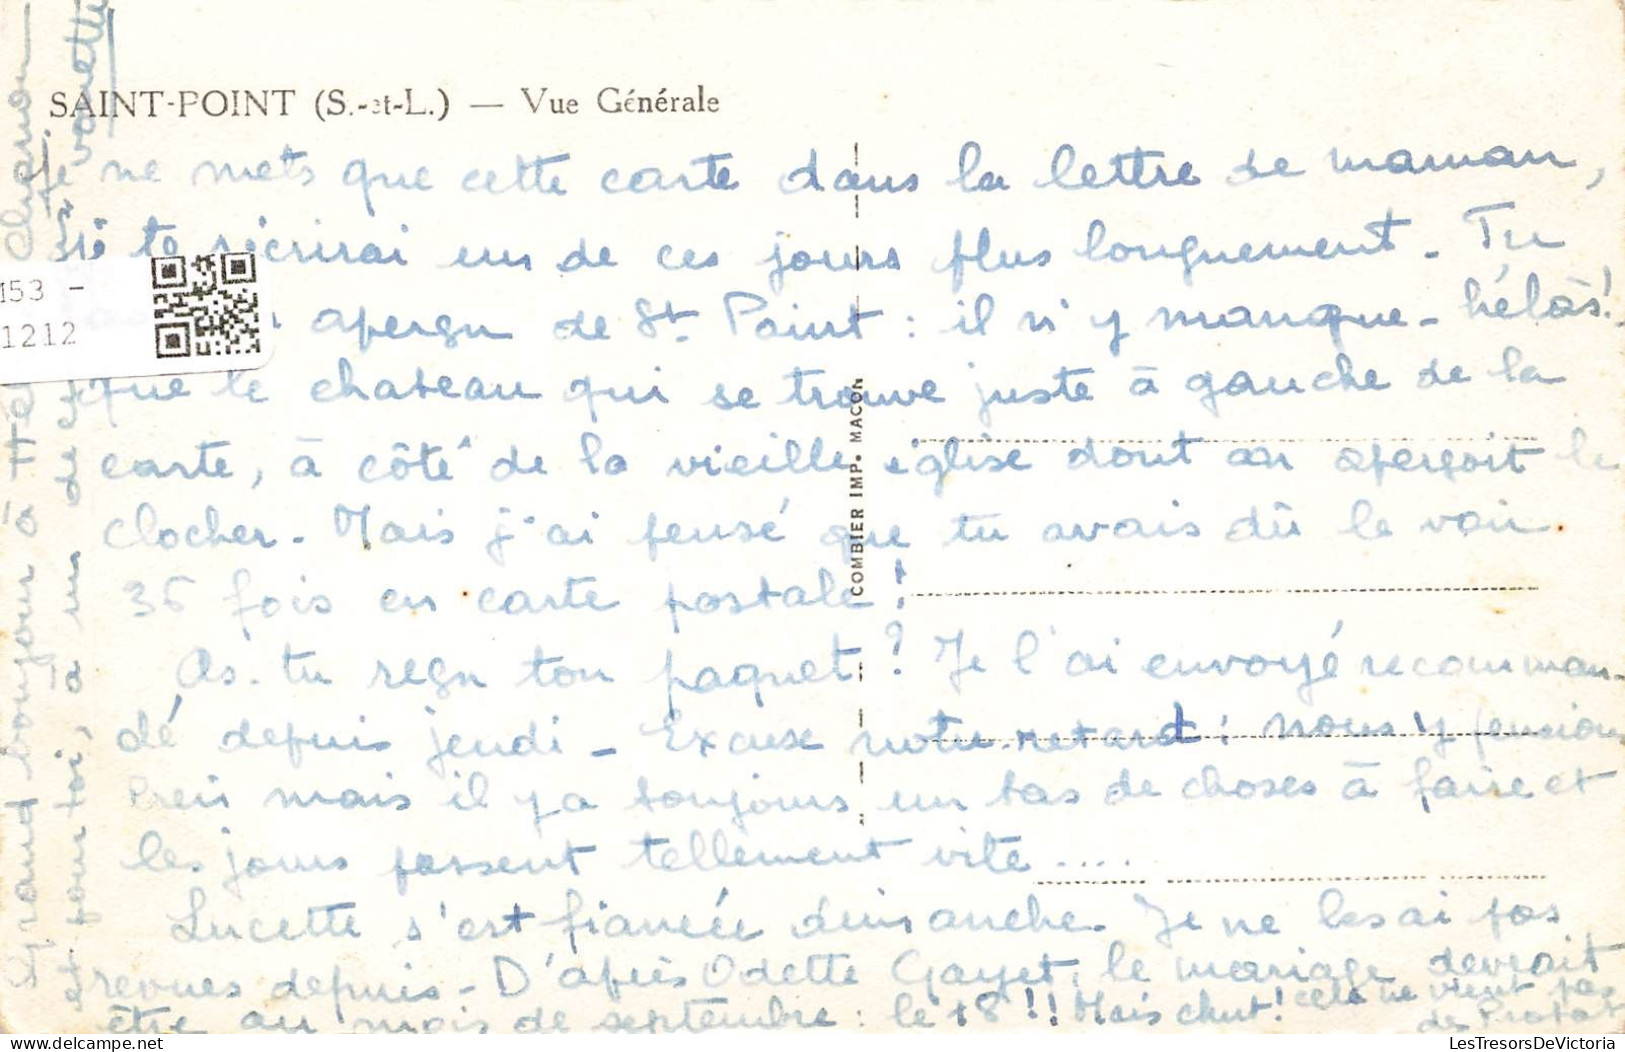 SAINT-POINT (S.-et-L.) — Vue Générale
Je ne mets que cette carte dans la lettre de maman,
je te récrirai un de ces jours plus longuement. Tu
aperçu de St Point : il n'y manque - hélas!
que le chateau qui se trouve juste à gauche de la
carte, à côté de la vieille église dont on aperçoit le
clocher. Mais j'ai pensé que tu avais dû le voir
36 fois en carte postale!
As-tu reçu ton paquet? Je l'ai envoyé recomman-
dé depuis jeudi - Excuse notre retard; nous y pensions
mais il y a toujours un tas de choses à faire et
les jours passent tellement vite ....
Lucette s'est fiancée dimanche. Je ne les ai pas
revues depuis - D'après Odette Gayet, le mariage devrait
être au mois de septembre : le 18!! Mais chut! cela ne vient pas
de
Grand bonjour à
et pour toi, à un de
COMBIER IMP. MACON
M53 -
1212
LesTresorsDeVictoria
www.delcampe.net